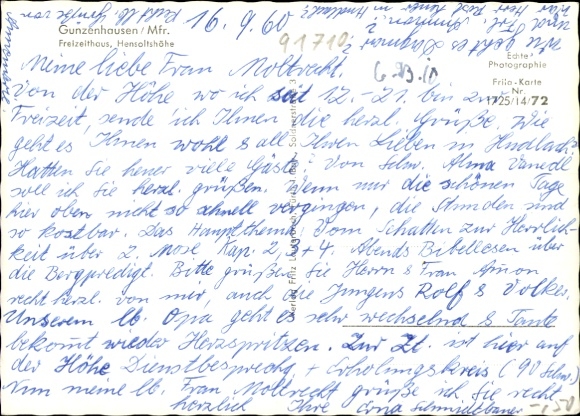 16.9.60
Gunzenhausen / Mfr.
Freizeithaus, Hensoltshöhe
91710
Echte
Photographie
Frilo-Karte
Nr.
1725/14/72
Meine liebe Frau Moltrecht.
Von der Höhe wo ich seit 12.-21. bin zur
Freizeit, sende ich Ihnen die herzl. Grüße. Wie
geht es Ihnen wohl & all Ihren Lieben in
Hatten Sie heuer viele Gäste? Von Schw. Alma
soll ich Sie herzl. grüßen. Wenn nur die schönen Tage
hier oben nicht so schnell vergingen, die Stunden sind
so kostbar. Das Hauptthema: Vom Schatten zur Herrlich-
keit über 2 Mose Kap. 2, 3 + 4. Abends Bibellesen über
die Bergpredigt. Bitte grüßen Sie Herrn & Frau
recht herzl. von mir, auch die Jungens Rolf & Volker.
Unserem lb. Opa geht es sehr wechselnd & Tante
bekommt wieder Herzspritzen. Zur Zt. ist hier auf
der Höhe Dienstbesprechg. + Erholungskreis (90 Schw.)
Nun meine lb. Frau Moltrecht grüße ich Sie recht
herzlich Ihre Erna
Verlag Fritz